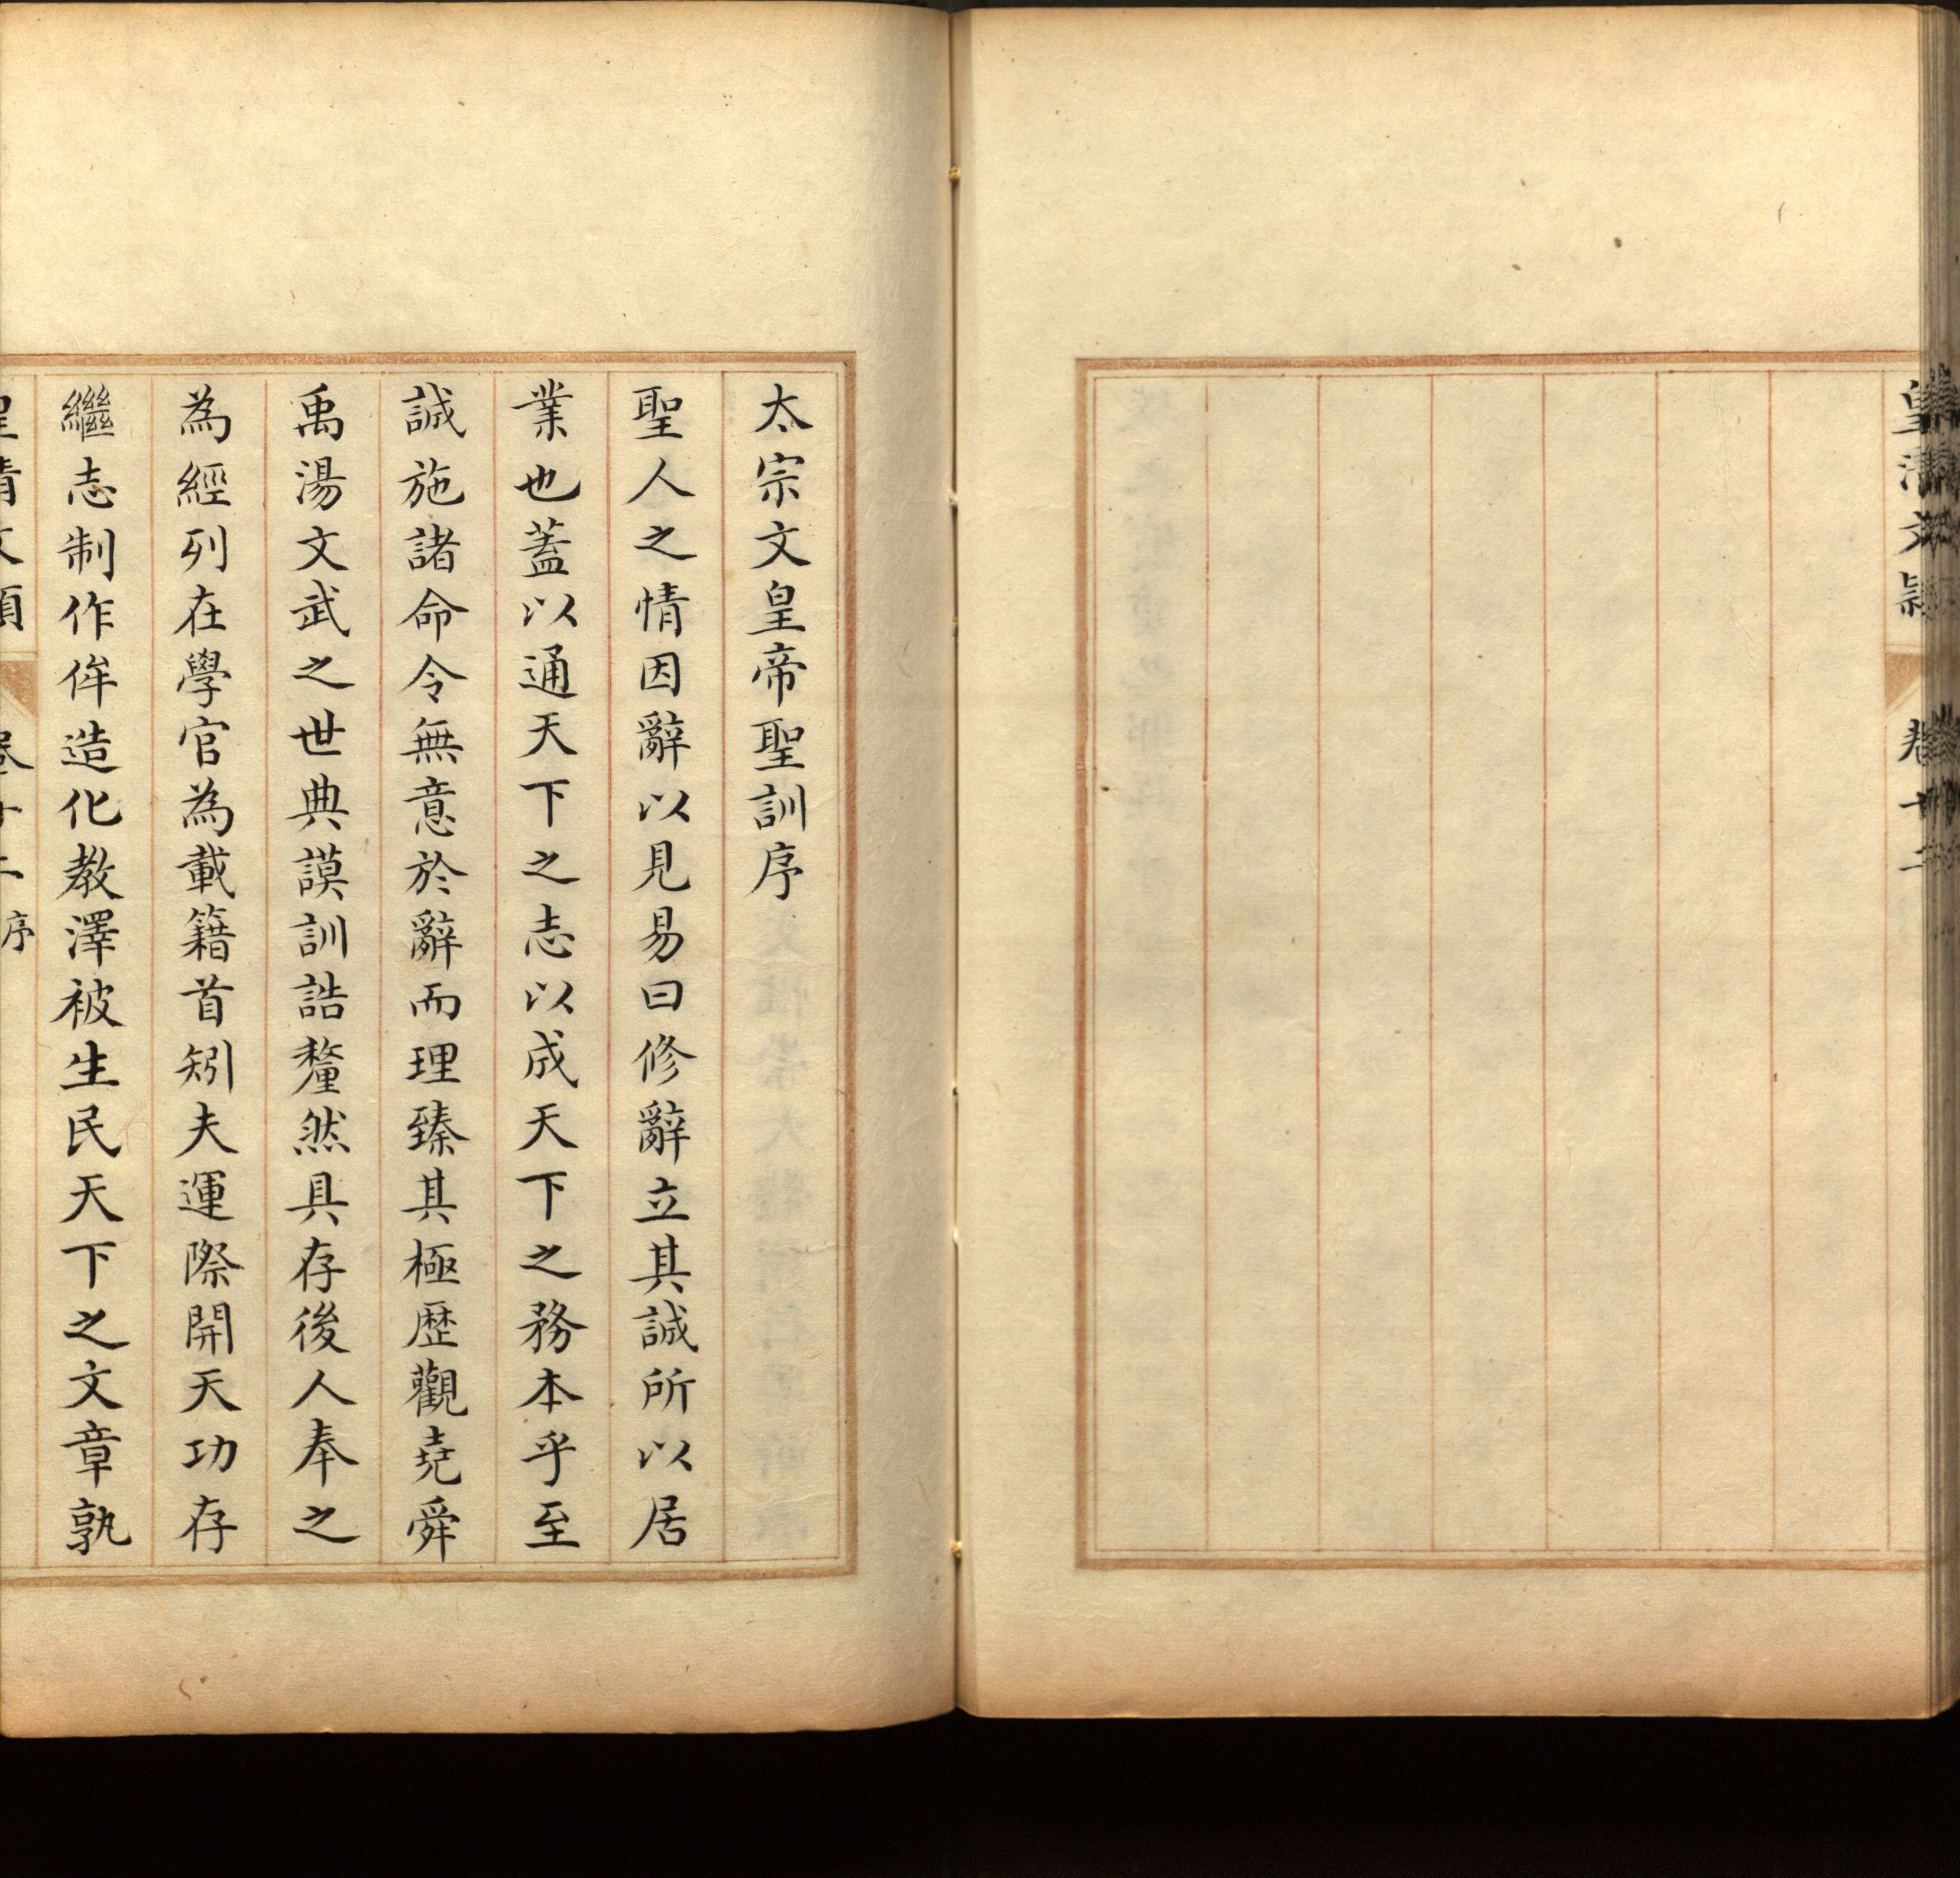 皇清文穎
卷十二
太宗文皇帝聖訓序
聖人之情因辭以見易曰修辭立其誠所以居
業也蓋以通天下之志以成天下之務本乎至
誠施諸命令無意於辭而理臻其極歷觀堯舜
禹湯文武之世典謨訓誥釐然具存後人奉之
為經列在學官為載籍首矧夫運際開天功存
繼志制作侔造化教澤被生民天下之文章孰
皇清文穎
卷十二 序